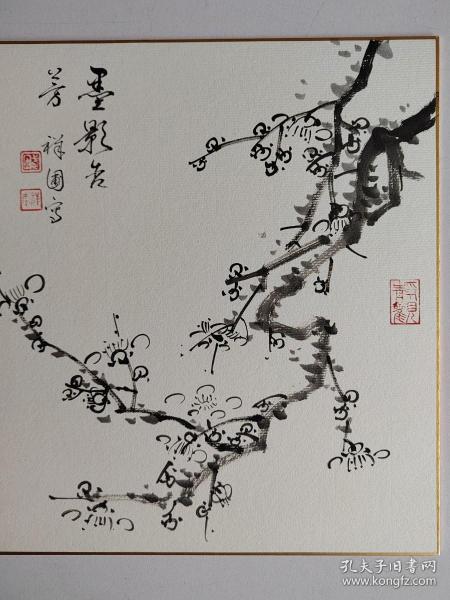 墨影含
芳 祥園寫
孔夫子旧书网
www.kongfz.com